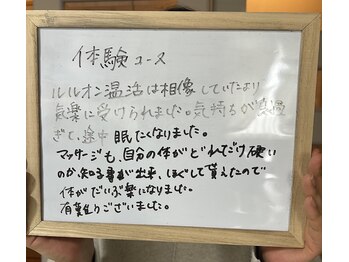 体験コース
ルルオン温活は相像していたより
気楽に受けられました。気持ちが良過
ぎて、途中 眠たくなりました。
マッサージも、自分の体がどれだけ硬い
のか知る事が出来、ほぐして貰えたので
体がだいぶ楽になりました。
有難うございました。